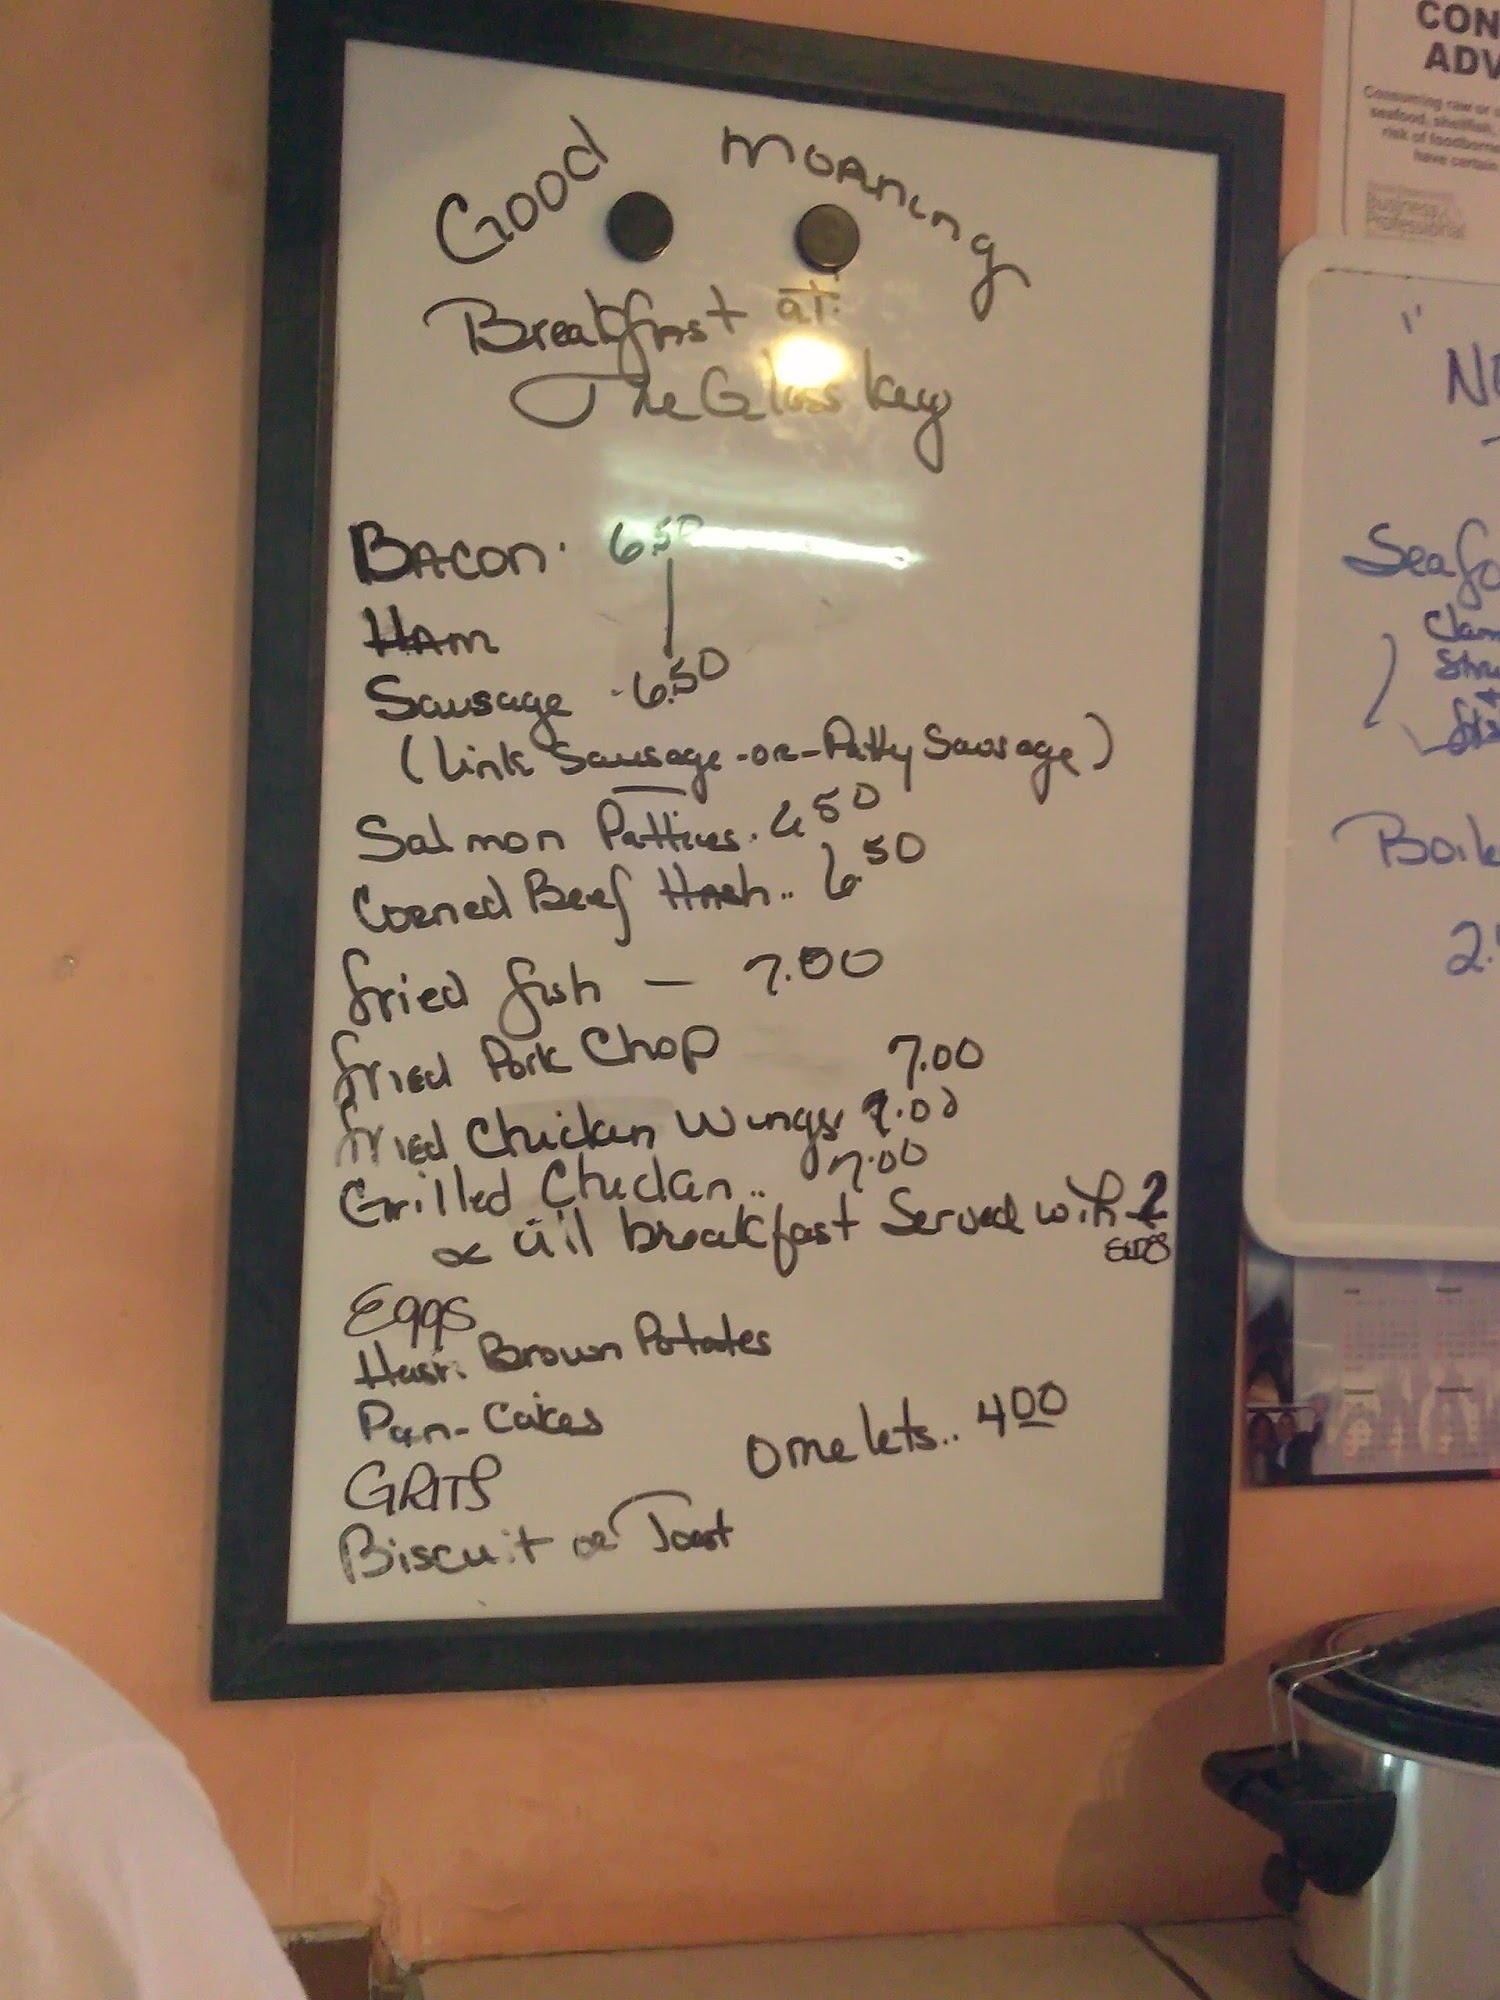 Good Morning
Breakfast at:
The Glass key
Bacon. 6.50
Ham
Sausage .6.50
(Link Sausage -or- Patty Sausage)
Salmon Patties. 6 50
Corned Beef Hash.. 6.50
Fried fish - 7.00
Fried Pork Chop 7.00
Fried Chicken Wings 7.00
Grilled Chicken.. 7.00
all breakfast Served with 2
SIDES
Eggs
Hash Brown Potatoes
Pan-Cakes
Omelets.. 4 00
GRITS
Biscuit or Toast
CON
ADV
Consuming raw or
seafood, shellfish,
risk of foodborne
have certain
Business
Professional
Seafo
Clam
Boile
2.